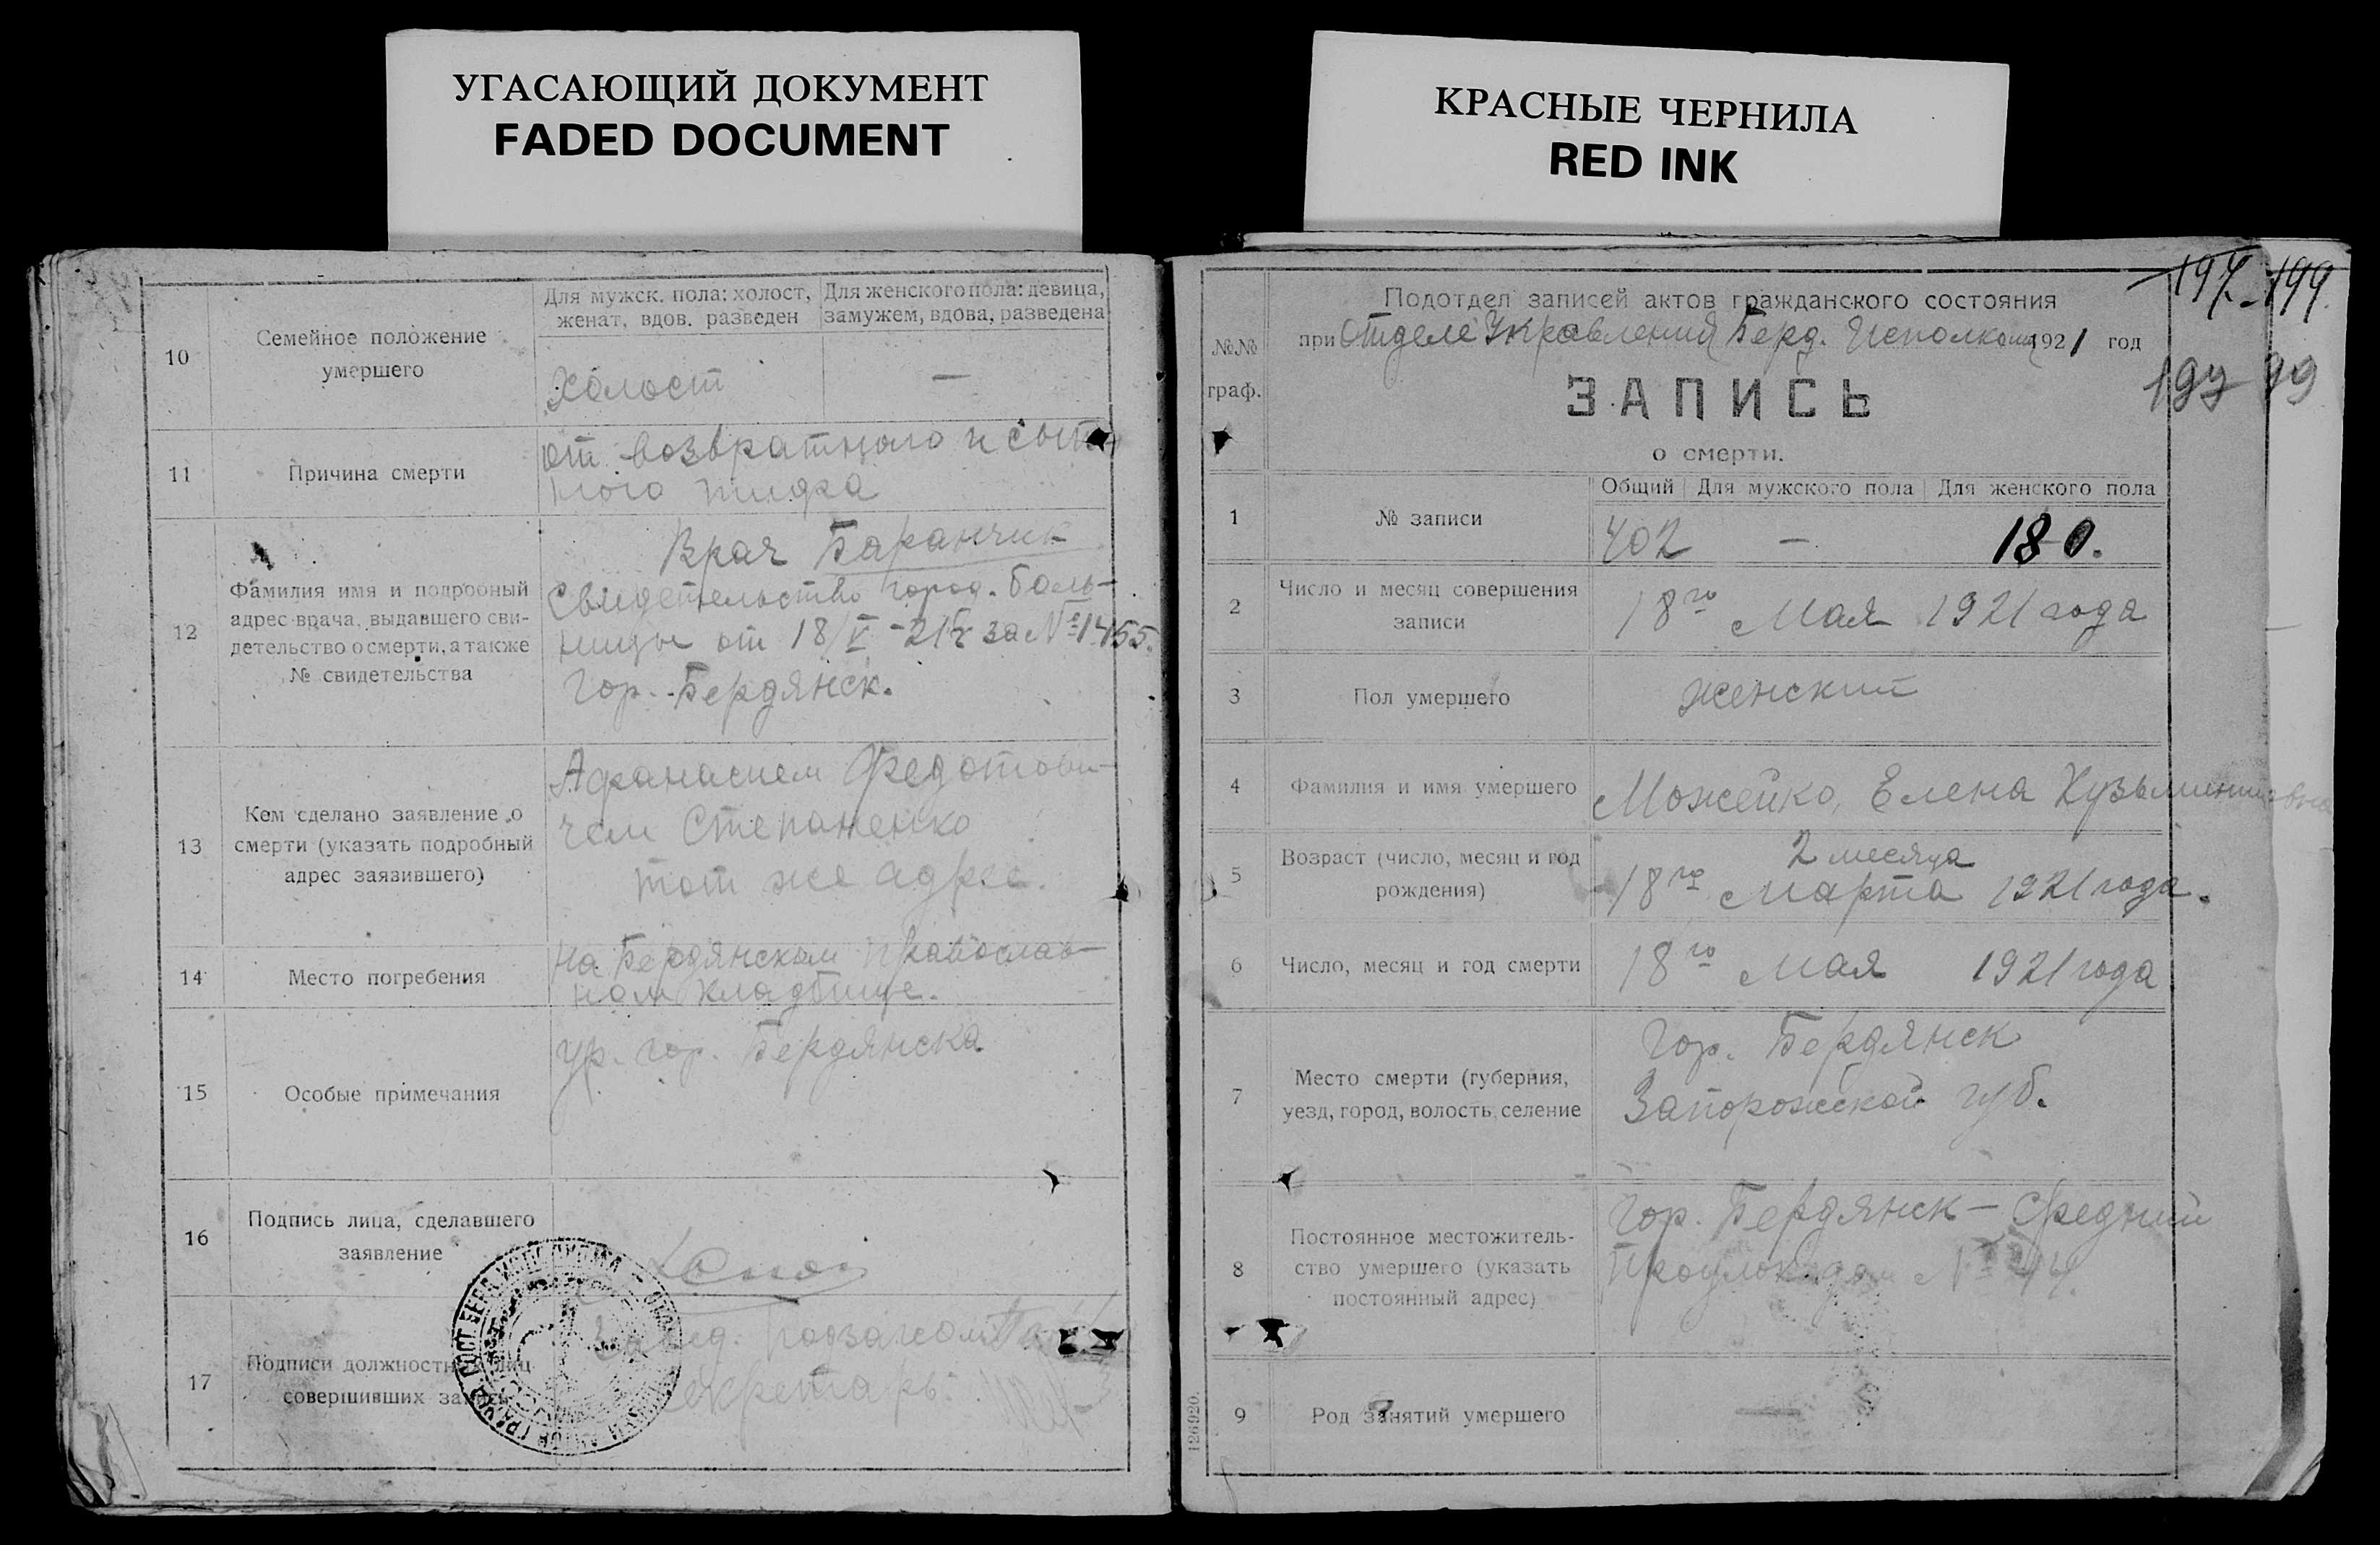 УГАСАЮЩИЙ ДОКУМЕНТ
FADED DOCUMENT
КРАСНЫЕ ЧЕРНИЛА
RED INK
10
Семейное положение
умершего
Для мужск. пола: холост,
женат, вдов. разведен
Для женского пола: девица,
замужем, вдова, разведена
Холост
—
11
Причина смерти
от возвратного и сып
ного тифа
12
Фамилия имя и подробный
адрес врача, выдавшего сви-
детельство о смерти, а также
№ свидетельства
Врач Баранчик
Свидетельство город. боль-
ницы от 18/V -21г за № 1455.
гор. Бердянск.
13
Кем сделано заявление о
смерти (указать подробный
адрес заявившего)
Афанасием Федотови-
чем Степаненко
тот же адрес.
14
Место погребения
на Бердянском православ-
ном кладбище.
15
Особые примечания
ур. гор. Бердянска
16
Подпись лица, сделавшего
заявление
17
Подписи должностн лиц
совершивших за
Завед. подзагсом
Секретарь:
197 - 199.
197 99
№№
граф.
Подотдел записей актов гражданского состояния
при Отделе Управления Берд. Исполкома 1921 год
ЗАПИСЬ
о смерти.
1
№ записи
Общий Для мужского пола Для женского пола
402 — 180.
2
Число и месяц совершения
записи
18го Мая 1921 года
3
Пол умершего
женский
4
Фамилия и имя умершего
Можейко, Елена Кузьминишвна
5
Возраст (число, месяц и год
рождения)
2 месяца
18го Марта 1921 года.
6
Число, месяц и год смерти
18го Мая 1921 года
7
Место смерти (губерния,
уезд, город, волость, селение
Гор. Бердянск
Запорожской губ.
8
Постоянное местожитель-
ство умершего (указать
постоянный адрес)
Гор. Бердянск - Средний
Проулок дом № 44.
9
Род занятий умершего
—
126920.